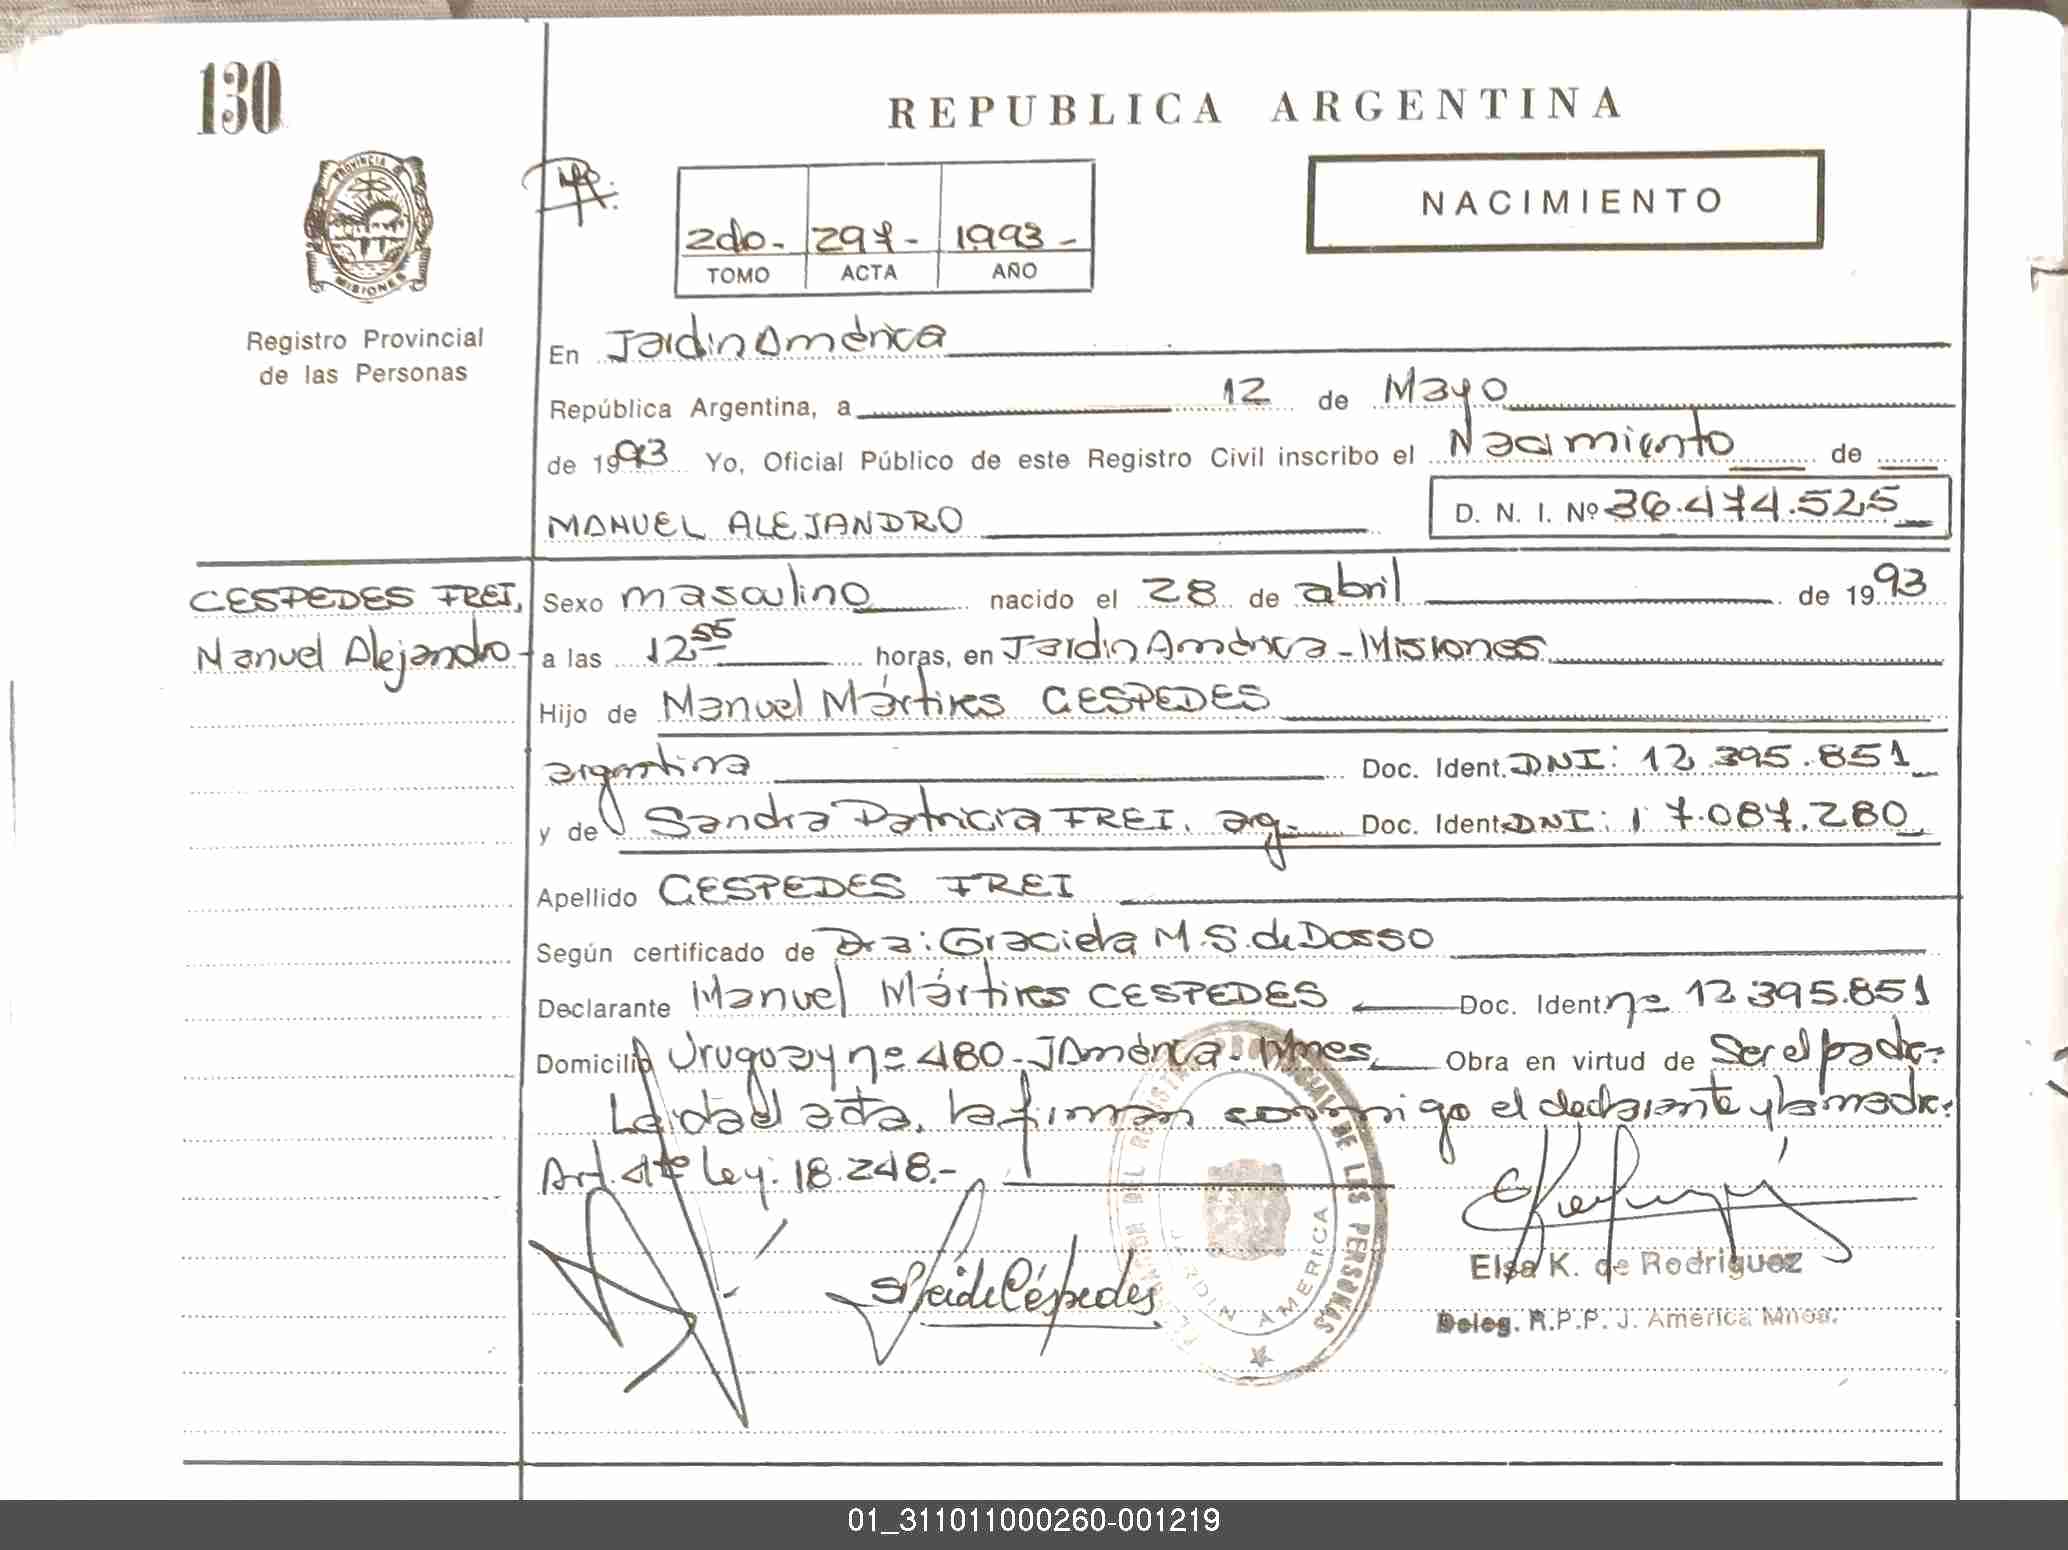 130
REPUBLICA ARGENTINA
PROVINCIA
MISIONES
NACIMIENTO
2do - 297 - 1993 -
TOMO ACTA AÑO
Registro Provincial
de las Personas
En Jardín América
República Argentina, a 12 de Mayo
de 1993 Yo, Oficial Público de este Registro Civil inscribo el Nacimiento de
MANUEL ALEJANDRO D. N. I. Nº 36.474.525
CESPEDES FREI,
Manuel Alejandro -
Sexo masculino nacido el 28 de abril de 1993
a las 12 55 horas, en Jardín América - Misiones
Hijo de Manuel Mártires CESPEDES
argentina Doc. Ident. DNI: 12.395.851
y de Sandra Patricia FREI. arg. Doc. Ident. DNI: 17.087.280
Apellido CESPEDES FREI
Según certificado de Dra: Graciela M. S. de Dosso
Declarante Manuel Mártires CESPEDES Doc. Ident. nº 12.395.851
Domicilio Uruguay nº 480 - J América - Mnes. Obra en virtud de Ser el padre.
Leída el acta, la firman conmigo el declarante y la madre.
Art. 4to Ley: 18.248.-
S F de Céspedes
DEL REGISTRO PROVINCIAL DE LAS PERSONAS
JARDIN AMERICA
Elsa K. de Rodriguez
Deleg. R.P.P. J. América Mnes.
01_311011000260-001219